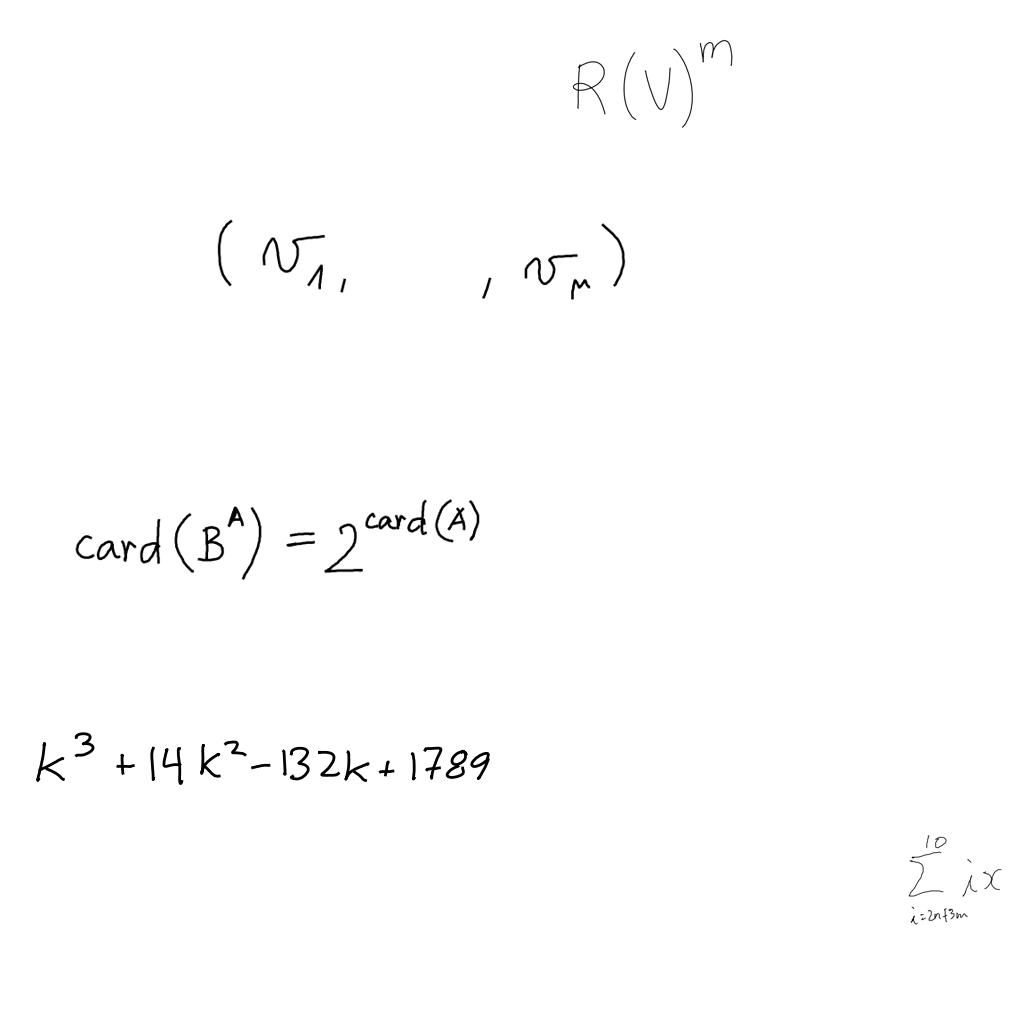 R(V)^m
(v_1, , v_n)
card(B^A) = 2^{card(A)}
k^3 + 14k^2 - 132k + 1789
\sum_{i=2n+3m}^{10} ix